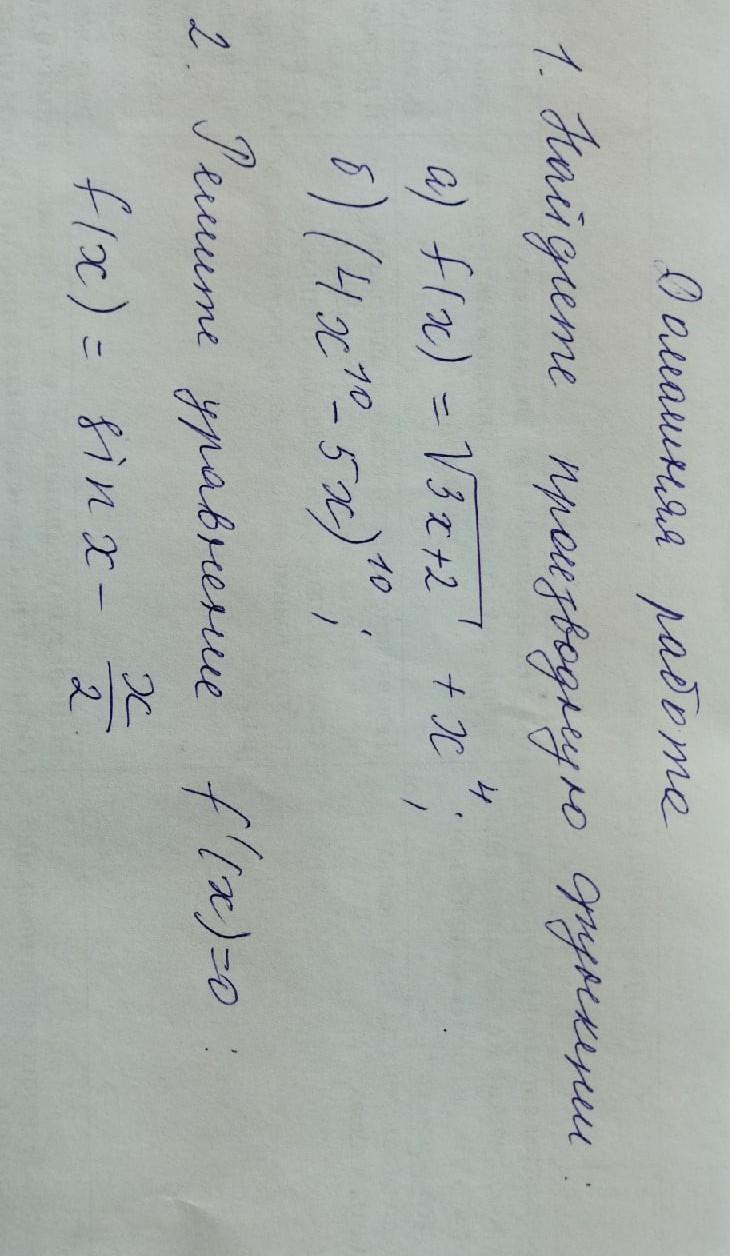 Домашняя работа
1. Найдите производную функции:
а) f(x) = √(3x+2) + x⁴;
б) (4x¹⁰ - 5x)¹⁰;
2. Решите уравнение f'(x)=0:
f(x) = sin x - x/2